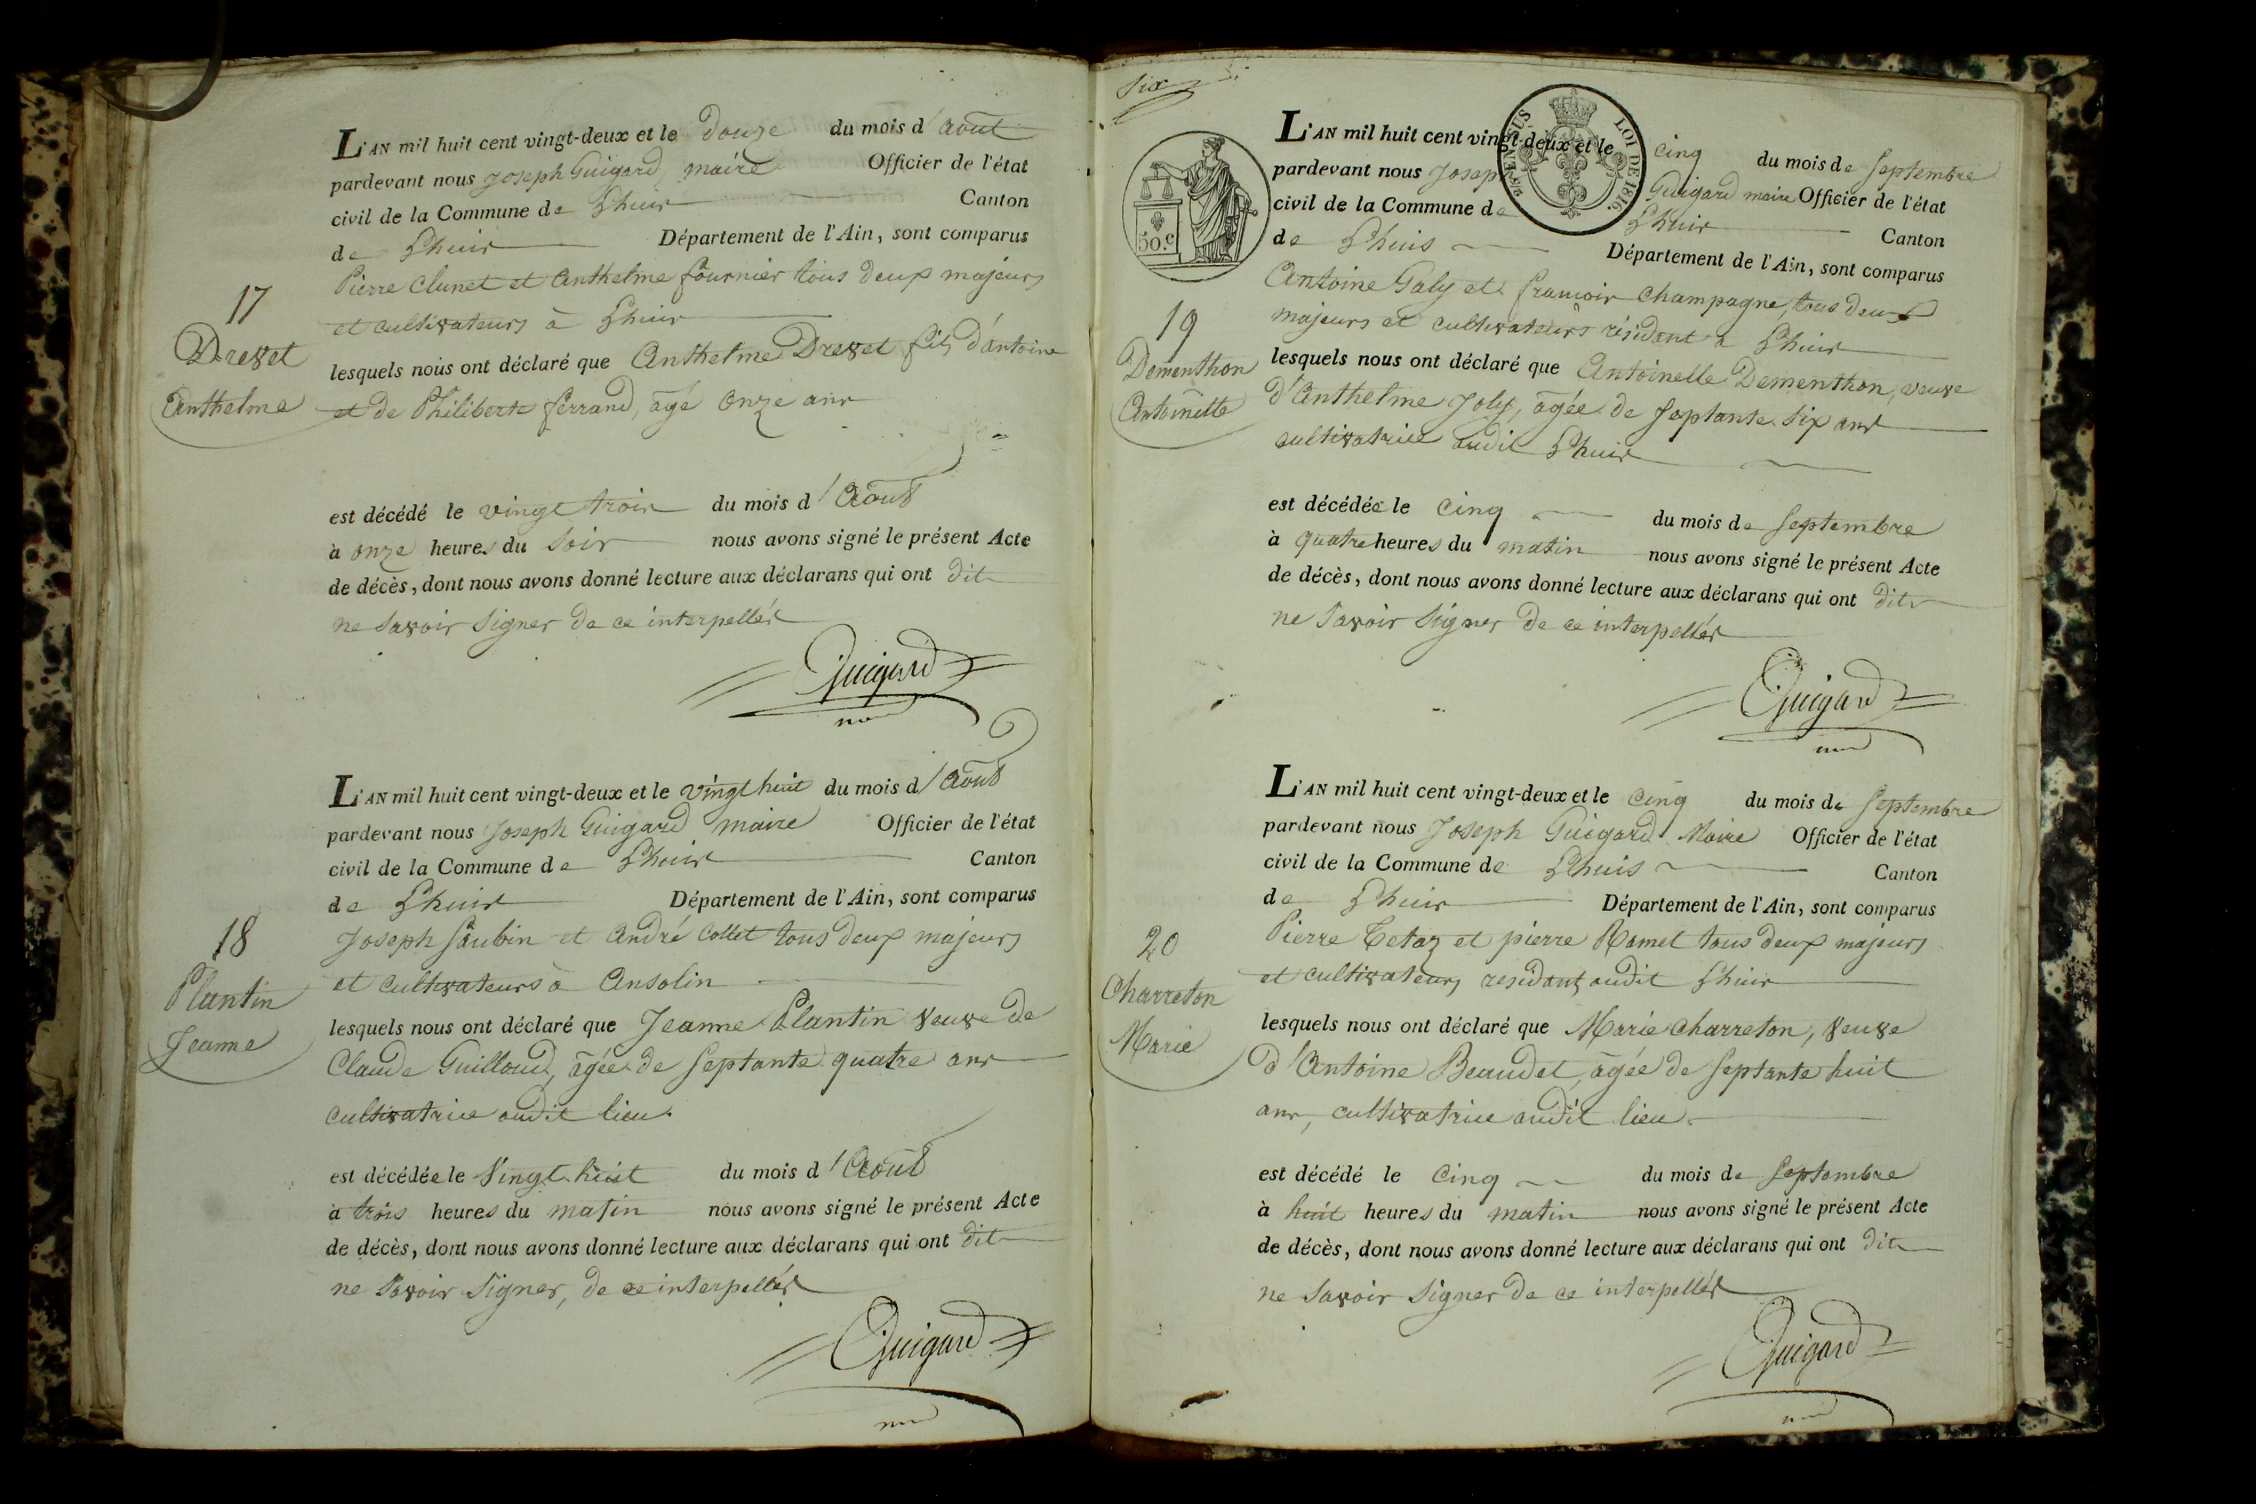 L'AN mil huit cent vingt-deux et le douze du mois d'août
pardevant nous Joseph Guigard, maire Officier de l'état
civil de la Commune de Lhuis Canton
de Lhuis Département de l'Ain, sont comparus
Pierre Clunet et Anthelme fournier tous deux majeurs
et cultivateurs à Lhuis
17
Drevet
Anthelme
lesquels nous ont déclaré que Anthelme Drevet fils d'antoine
et de Philiberte ferrand, âgé onze ans
est décédé le vingt trois du mois d'Août
à onze heures du soir nous avons signé le présent Acte
de décès, dont nous avons donné lecture aux déclarans qui ont dit
ne savoir signer de ce interpellés
Guigard
L'AN mil huit cent vingt-deux et le vingt huit du mois d'Août
pardevant nous Joseph Guigard maire Officier de l'état
civil de la Commune de Lhuis Canton
de Lhuis Département de l'Ain, sont comparus
Joseph Saubin et André Collet tous deux majeurs
et cultivateurs à Ansolin
18
Plantin
Jeanne
lesquels nous ont déclaré que Jeanne Plantin veuve de
Claude Guilloud, âgée de septante quatre ans
cultivatrice audit lieu
est décédée le vingt huit du mois d'Août
à trois heures du matin nous avons signé le présent Acte
de décès, dont nous avons donné lecture aux déclarans qui ont dit
ne savoir signer, de ce interpellés
Guigard
six
50.c
LOI DE 1816.
L'AN mil huit cent vingt-deux et le cinq du mois de septembre
pardevant nous Joseph Guigard maire Officier de l'état
civil de la Commune de Lhuis Canton
de Lhuis Département de l'Ain, sont comparus
Antoine Galy et francois Champagne, tous deux
majeurs et cultivateurs résidant à Lhuis
19
Dementhon
Antoinette
lesquels nous ont déclaré que Antoinette Dementhon, veuve
d'Anthelme Joly, âgée de septante six ans
cultivatrice audit Lhuis
est décédée le cinq du mois de septembre
à quatre heures du matin nous avons signé le présent Acte
de décès, dont nous avons donné lecture aux déclarans qui ont dit
ne savoir signer de ce interpellés
Guigard
L'AN mil huit cent vingt-deux et le cinq du mois de septembre
pardevant nous Joseph Guigard Maire Officier de l'état
civil de la Commune de Lhuis Canton
de Lhuis Département de l'Ain, sont comparus
Pierre Tetaz et pierre Ramel tous deux majeurs
et cultivateurs residant audit Lhuis
20
Charreton
Marie
lesquels nous ont déclaré que Marie Charreton, veuve
d'Antoine Beaudet, âgée de septante huit
ans, cultivatrice audit lieu
est décédé le cinq du mois de septembre
à huit heures du matin nous avons signé le présent Acte
de décès, dont nous avons donné lecture aux déclarans qui ont dit
ne savoir signer de ce interpellés
Guigard